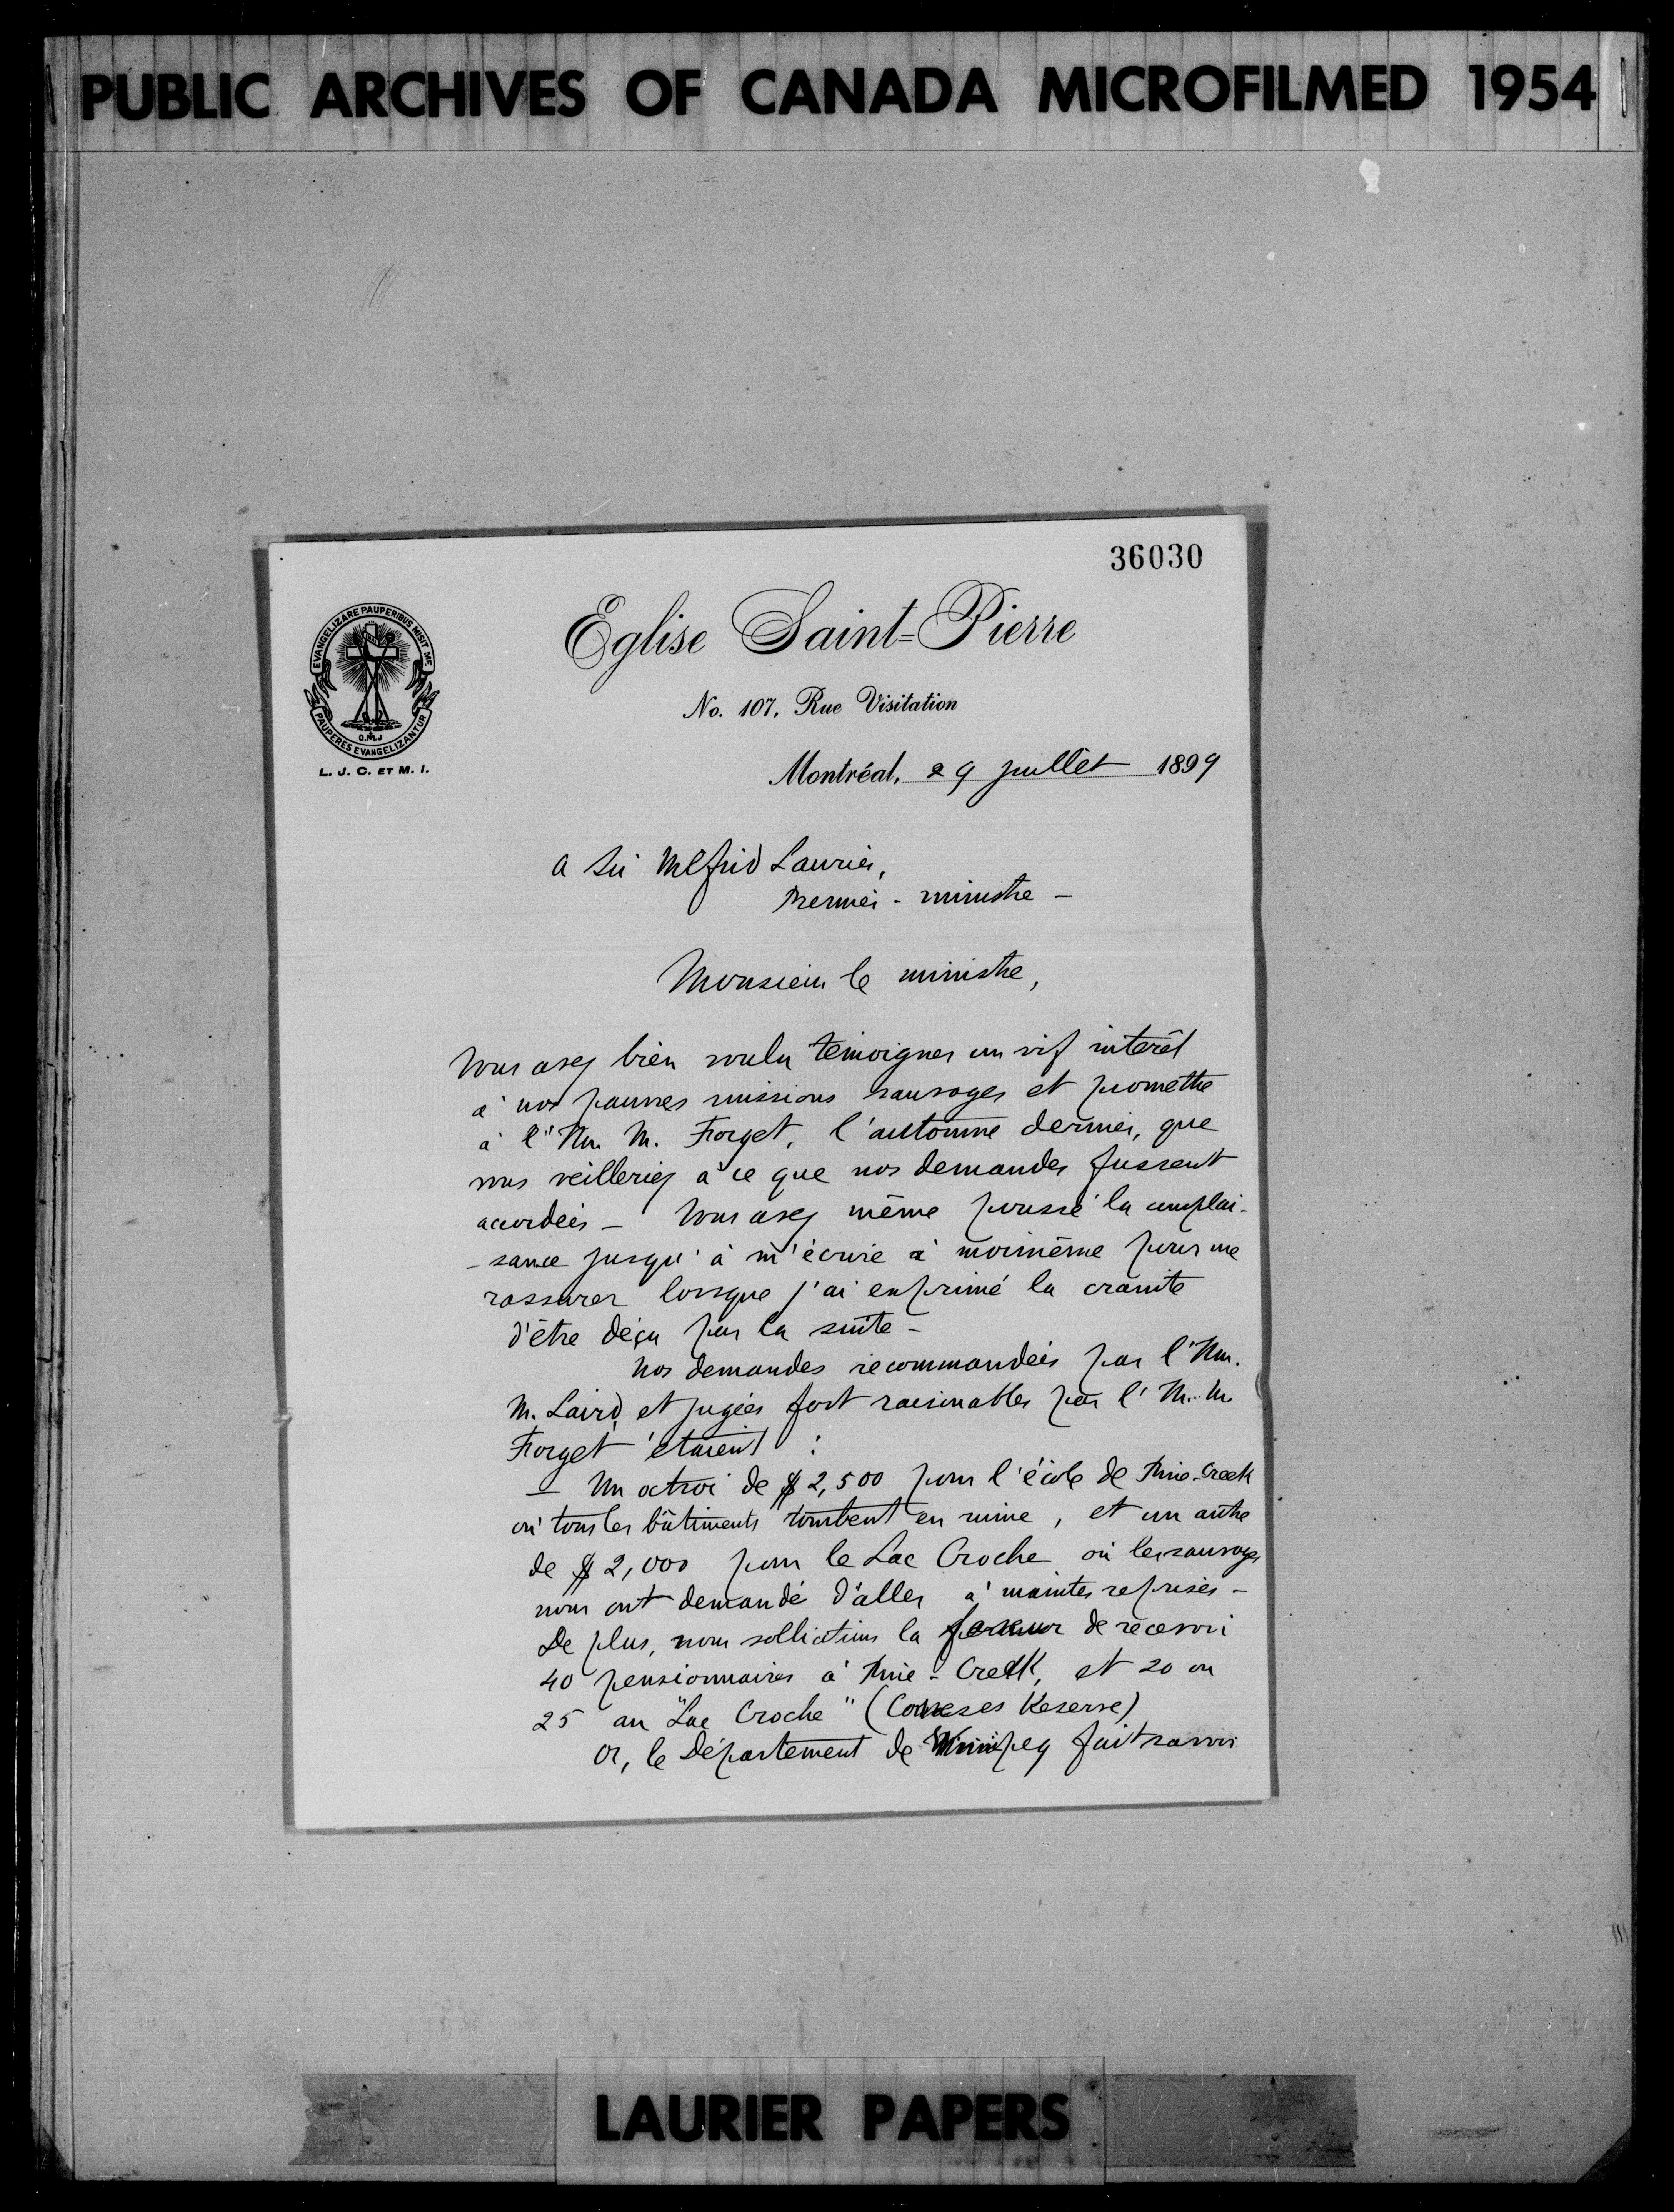 PUBLIC ARCHIVES OF CANADA MICROFILMED 1954
36030
EVANGELIZARE PAUPERIBUS MISIT ME
PAUPERES EVANGELIZANTUR
O.M.J
L. J. C. ET M. I.
Eglise Saint-Pierre
No. 107, Rue Visitation
Montréal, 29 juillet 1899
A Sir Wilfrid Laurier,
Premier-ministre -
Monsieur le ministre,
Vous avez bien voulu témoigner un vif intérêt
à nos pauvres missions sauvages et promettre
à l'Hon. M. Forget, l'automne dernier, que
vous veilleriez à ce que nos demandes fussent
accordées - Vous avez même poussé la complai-
-sance jusqu'à m'écrire à moimême pour me
rassurer lorsque j'ai exprimé la crainte
d'être déçu par la suite -
Nos demandes recommandées par l'Hon.
M. Laird, et jugées fort raisonnables par l'H. M.
Forget étaient :
- Un octroi de $2,500 pour l'école de Pine-Creek
où tous les bâtiments tombent en ruine, et un autre
de $2,000 pour le Lac Croche où les sauvages
nous ont demandé d'aller à maintes reprises -
De plus, nous sollicitions la faveur de recevoir
40 pensionnaires à Pine-Creek, et 20 ou
25 au "Lac Croche" (Cowesses Reserve)
Or, le Département de Winnipeg fait savoir
LAURIER PAPERS